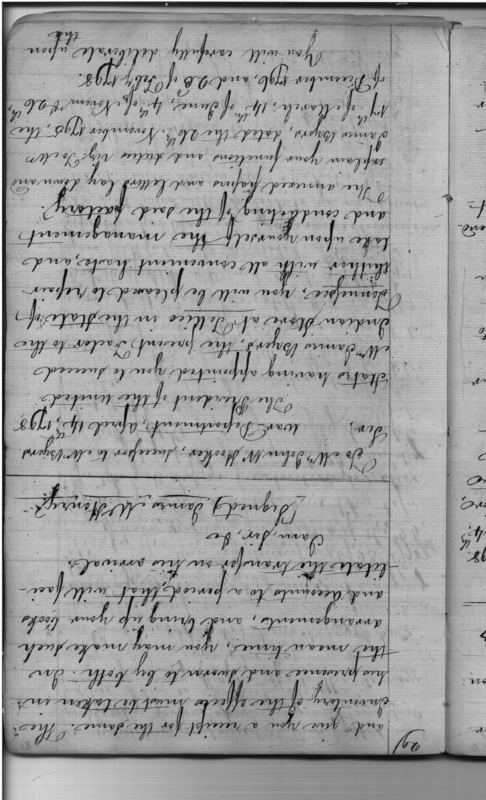 29)
and give you a receipt for the same. The
inventory of the effects must be taken in
his presence and sworn to by both. In
the mean time, you may make such
arrangements, and bring up your books
and accounts to a period, that will faci-
litate the transfer on his arrival.
I am, Sir, &c
(Signed) James McHenry.
To Mr John W Hooker, successor to Mr Byers
Sir, War Department April 14th, 1798
The President of the United
States having appointed you to succeed
Mr James Byers, the present Factor to the
Indian Store at Tellico in the State of
Tennessee, you will be pleased to repair
thither with all convenient haste, and
take upon yourself the management
and conducting of the said factory.
The annexed papers and letters lay down and
explain your functions and duties viz. To Mr
James Byers, dated the 26th November 1795, the
17th of March, 14th of June, 4th of Novemr & 26th
of December 1796, and 26 of Feby 1798.
You will carefully deliberate upon
the